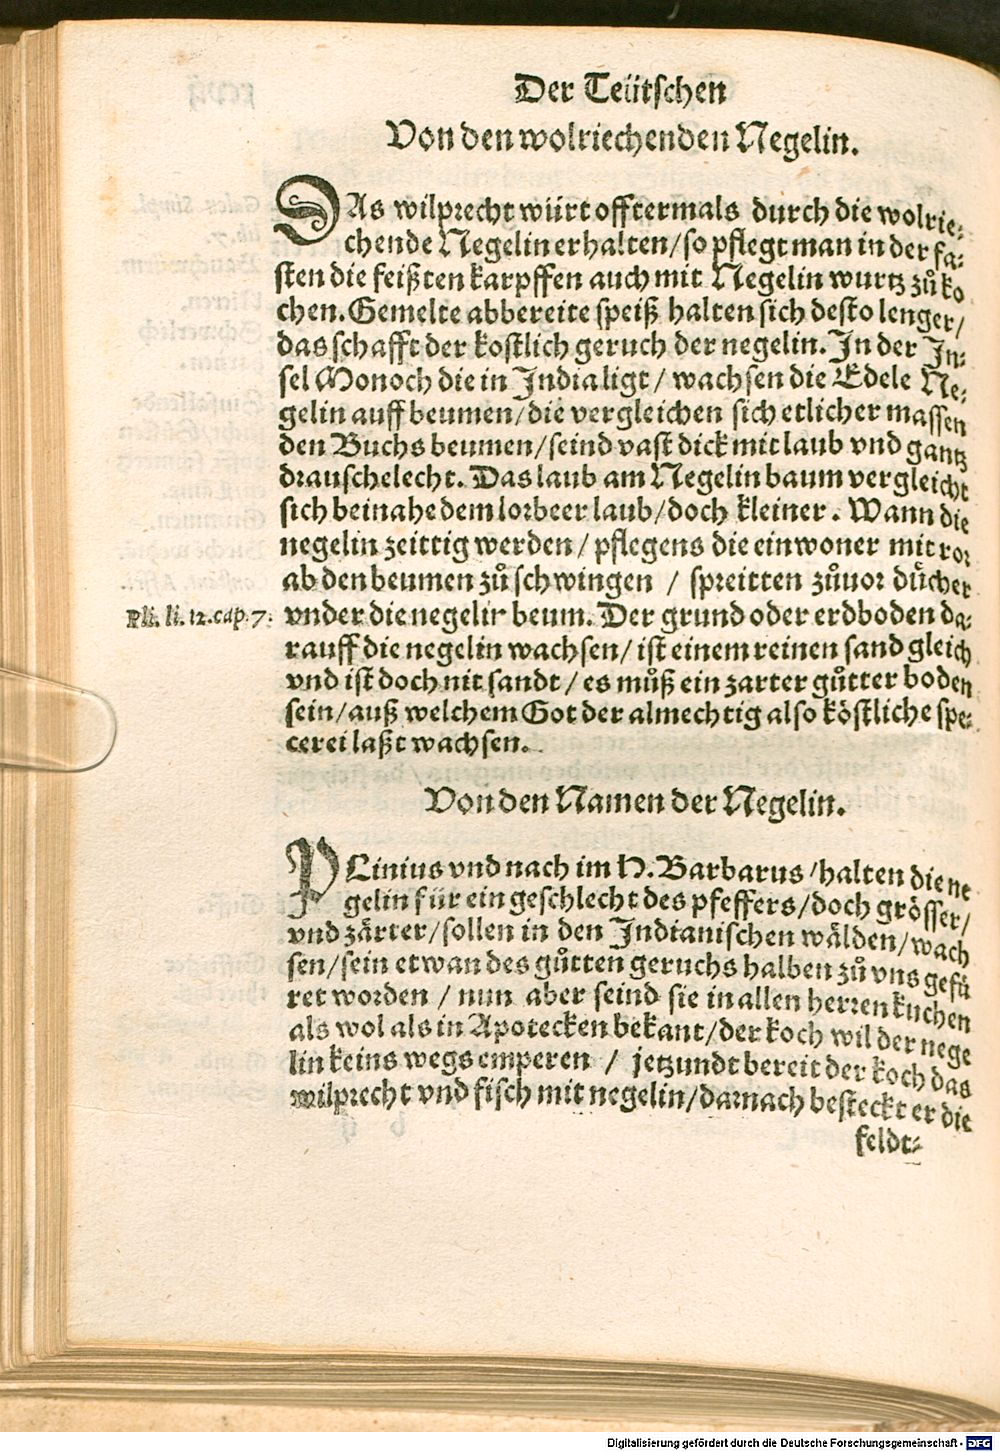 Der Teütschen
Von den wolriechenden Negelin.
DAs wilprecht würt offtermals durch die wolrie⸗
chende Negelin erhalten/so pflegt man in der fa⸗
sten die feißten karpffen auch mit Negelin wurtz zůko
chen. Gemelte abbereite speiß halten sich desto lenger/
das schafft der kostlich geruch der negelin. In der In⸗
sel Monoch die in India ligt/ wachsen die Edele Ne⸗
gelin auff beumen/die vergleichen sich etlicher massen
den Buchs beumen/seind vast dick mit laub vnd gantz
drauschelecht. Das laub am Negelin baum vergleicht
sich beinahe dem lorbeer laub/doch kleiner. Wann die
negelin zeittig werden/ pflegens die einwoner mit ror
ab den beumen zů schwingen / spreitten zůuor dücher
Pli. li. 12. cap. 7. vnder die negelin beum. Der grund oder erdboden da⸗
rauff die negelin wachsen/ ist einem reinen sand gleich
vnd ist doch nit sandt/ es můß ein zarter gůtter boden
sein/auß welchem Got der almechtig also köstliche spe⸗
cerei laßt wachsen.
Von den Namen der Negelin.
PLinius vnd nach im H. Barbarus/halten die ne
gelin für ein geschlecht des pfeffers/doch grösser/
vnd zärter/sollen in den Indianischen wälden/wach
sen/sein etwan des gůtten geruchs halben zů vns gefü
ret worden / nun aber seind sie in allen herren kuchen
als wol als in Apotecken bekant/der koch wil der nege
lin keins wegs emperen / jetzundt bereit der koch das
wilprecht vnd fisch mit negelin/darnach besteckt er die
feldt⸗
Digitalisierung gefördert durch die Deutsche Forschungsgemeinschaft - DFG